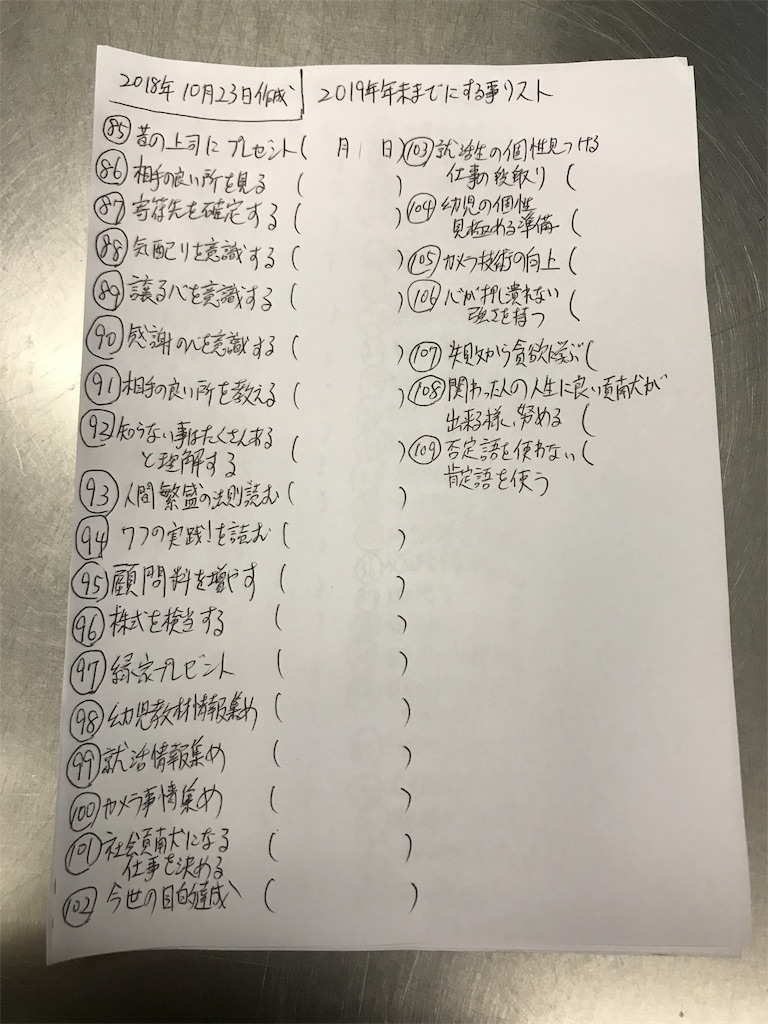 2018年10月23日作成 2019年年末までにする事リスト
85 昔の上司にプレゼント( 月 日)
86 相手の良い所を見る ( )
87 寄付先を確定する ( )
88 気配りを意識する ( )
89 譲る心を意識する ( )
90 感謝の心を意識する ( )
91 相手の良い所を教える ( )
92 知らない事はたくさんある
と理解する ( )
93 人間繁盛の法則読む ( )
94 7つの実践!を読む ( )
95 顧問料を増やす ( )
96 株式を検当する ( )
97 縁家プレゼント ( )
98 幼児教材情報集め ( )
99 就活情報集め ( )
100 カメラ事情集め ( )
101 社会貢献になる
仕事を決める ( )
102 今世の目的達成 ( )
103 就活生の個性見つける
仕事の段取り (
104 幼児の個性
見極める準備 (
105 カメラ技術の向上 (
106 心が押し潰れない
強さを持つ (
107 失敗から貪欲に学ぶ (
108 関わった人の人生に良い貢献が
出来る様に努める (
109 否定語を使わない (
肯定語を使う